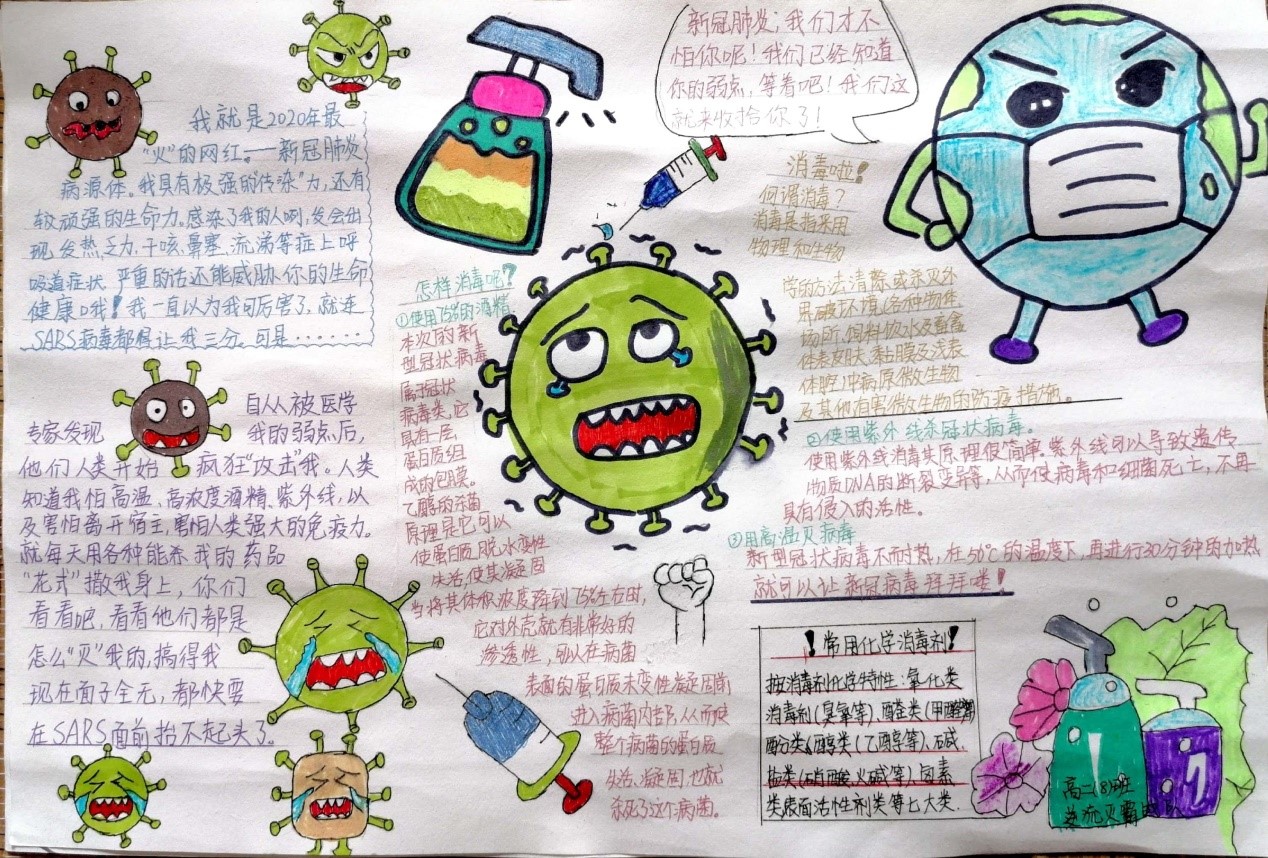 我就是2020年最
“火”的网红。——新冠肺炎
病源体。我具有极强的传染力,还有
较顽强的生命力。感染了我的人啊,发会出
现发热乏力、干咳、鼻塞、流涕等症上呼
吸道症状 严重的话还能威胁你的生命
健康哦!我一直以为我可厉害了,就连
SARS病毒都得让我三分。可是······
自从被医学
专家发现 我的弱点后,
他们人类开始 疯狂“攻击”我。人类
知道我怕高温、高浓度酒精、紫外线,以
及害怕离开宿主,害怕人类强大的免疫力。
就每天用各种能杀我的药品
“花式”撒我身上,你们
看看吧,看看他们都是
怎么“灭”我的,搞得我
现在面子全无,都快要
在SARS面前抬不起头了。
新冠肺炎,我们才不
怕你呢!我们已经知道
你的弱点,等着吧!我们这
就来收拾你了!
消毒啦!
何谓消毒?
消毒是指采用
物理和生物
学的方法清除或杀灭外
界环境、各种物体
场所、饲料饮水及畜禽
体表皮肤、黏膜及浅表
体腔中病原微生物
及其他有害微生物的防疫措施。
怎样消毒呢?
①使用75%的酒精
本次的新
型冠状病毒
属于冠状
病毒类,它
具有一层
蛋白质组
成的包膜。
乙醇的杀菌
原理是它可以
使蛋白质脱水变性
失活,使其凝固
当将其体积浓度降到75%左右时,
它对外壳就有非常好的
渗透性,可以在病菌
表面的蛋白质未变性凝固前
进入病菌内部,从而使
整个病菌的蛋白质
失活、凝固,也就
杀死了这个病菌。
②使用紫外线杀冠状病毒。
使用紫外线消毒其原理很简单。紫外线可以导致遗传
物质DNA的断裂变异等,从而使病毒和细菌死亡,不再
具有侵入的活性。
③用高温灭病毒
新型冠状病毒不耐热,在56℃的温度下,再进行30分钟的加热
就可以让新冠病毒拜拜喽!
!常用化学消毒剂!
按消毒剂化学特性:氧化类
消毒剂(臭氧等)、醛类(甲醛等)
酚类、醇类(乙醇等)、碱
盐类(硝酸、火碱等)、卤素
类表面活性剂类等七大类.
高二(8)班